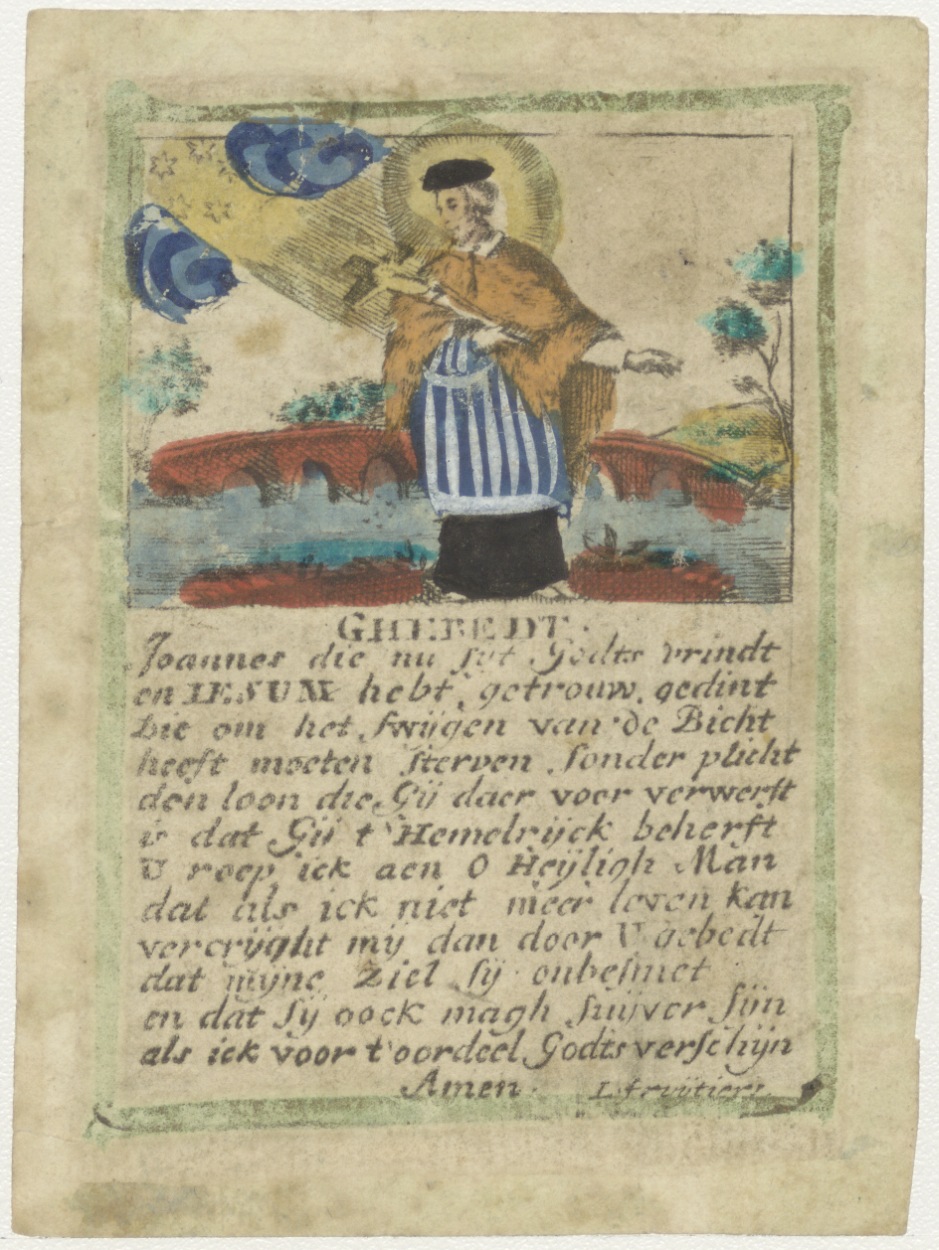 GHEBEDT.
Joannes die nu syt Godts vrindt
en IESUM hebt getrouw gedint
die om het swijgen van de Bicht
heeft moeten sterven sonder plicht
den loon die Gij daer voor verwerft
is dat Gij t'Hemelrijck beherft
U roep ick aen O Heijligh Man
dat als ick niet meer leven kan
vercrijght mij dan door U gebedt
dat mijne Ziel sij onbesmet
en dat sij oock magh suijver sijn
als ick voor t'oordeel Godts verschijn
Amen.
L. fruijtiers